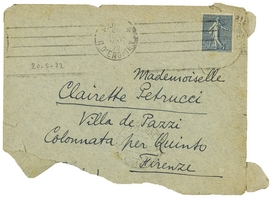 20-5-22
Mademoiselle
Clairette Petrucci
Villa de Pazzi
Colonnata per Quinto
Firenze